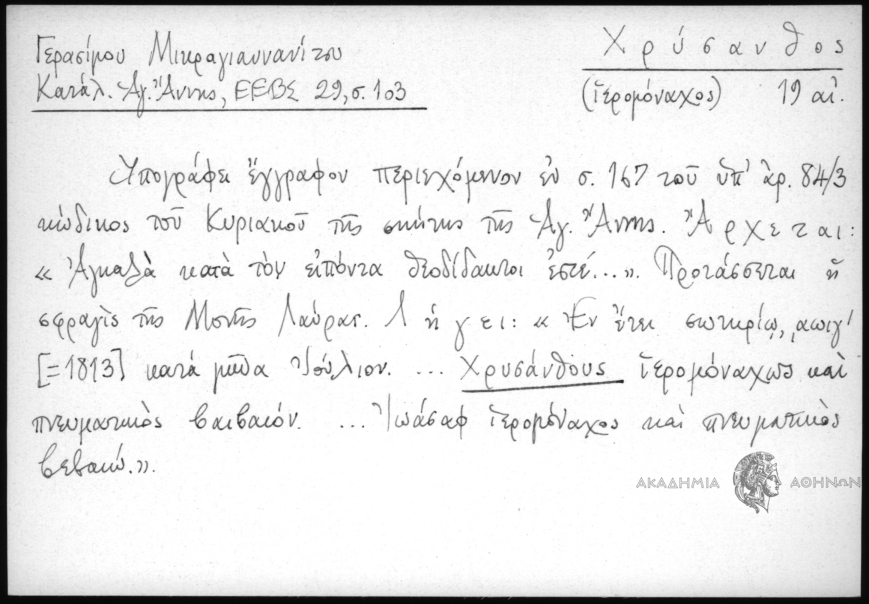 Γερασίμου Μικραγιαννανίτου
Κατάλ. Ἁγ. Ἄννης, ΕΕΒΣ 29, σ. 103
Χρύσανθος
(ἱερομόναχος) 19 αἰ.
Ὑπογράφει ἔγγραφον περιεχόμενον ἐν σ. 167 τοῦ ὑπ' ἀρ. 84/3
κώδικος τοῦ Κυριακοῦ τῆς σκήτης τῆς Ἁγ. Ἄννης. Ἄρχεται:
« Ἀγκαλὰ κατὰ τὸν εἰπόντα θεοδίδακτοι ἐστέ...». Προτάσσεται ἡ
σφραγὶς τῆς Μονῆς Λαύρας. Λήγει: « Ἐν ἔτει σωτηρίῳ, ͵αωιγ'
[=1813] κατὰ μῆνα Ἰούλιον. ... Χρυσάνθους ἱερομόναχως καὶ
πνευματικὸς βαιβαιόν. ... Ἰωάσαφ ἱερομόναχος καὶ πνευματικὸς
βεβαιῶ.».
ΑΚΑΔΗΜΙΑ ΑΘΗΝΩΝ